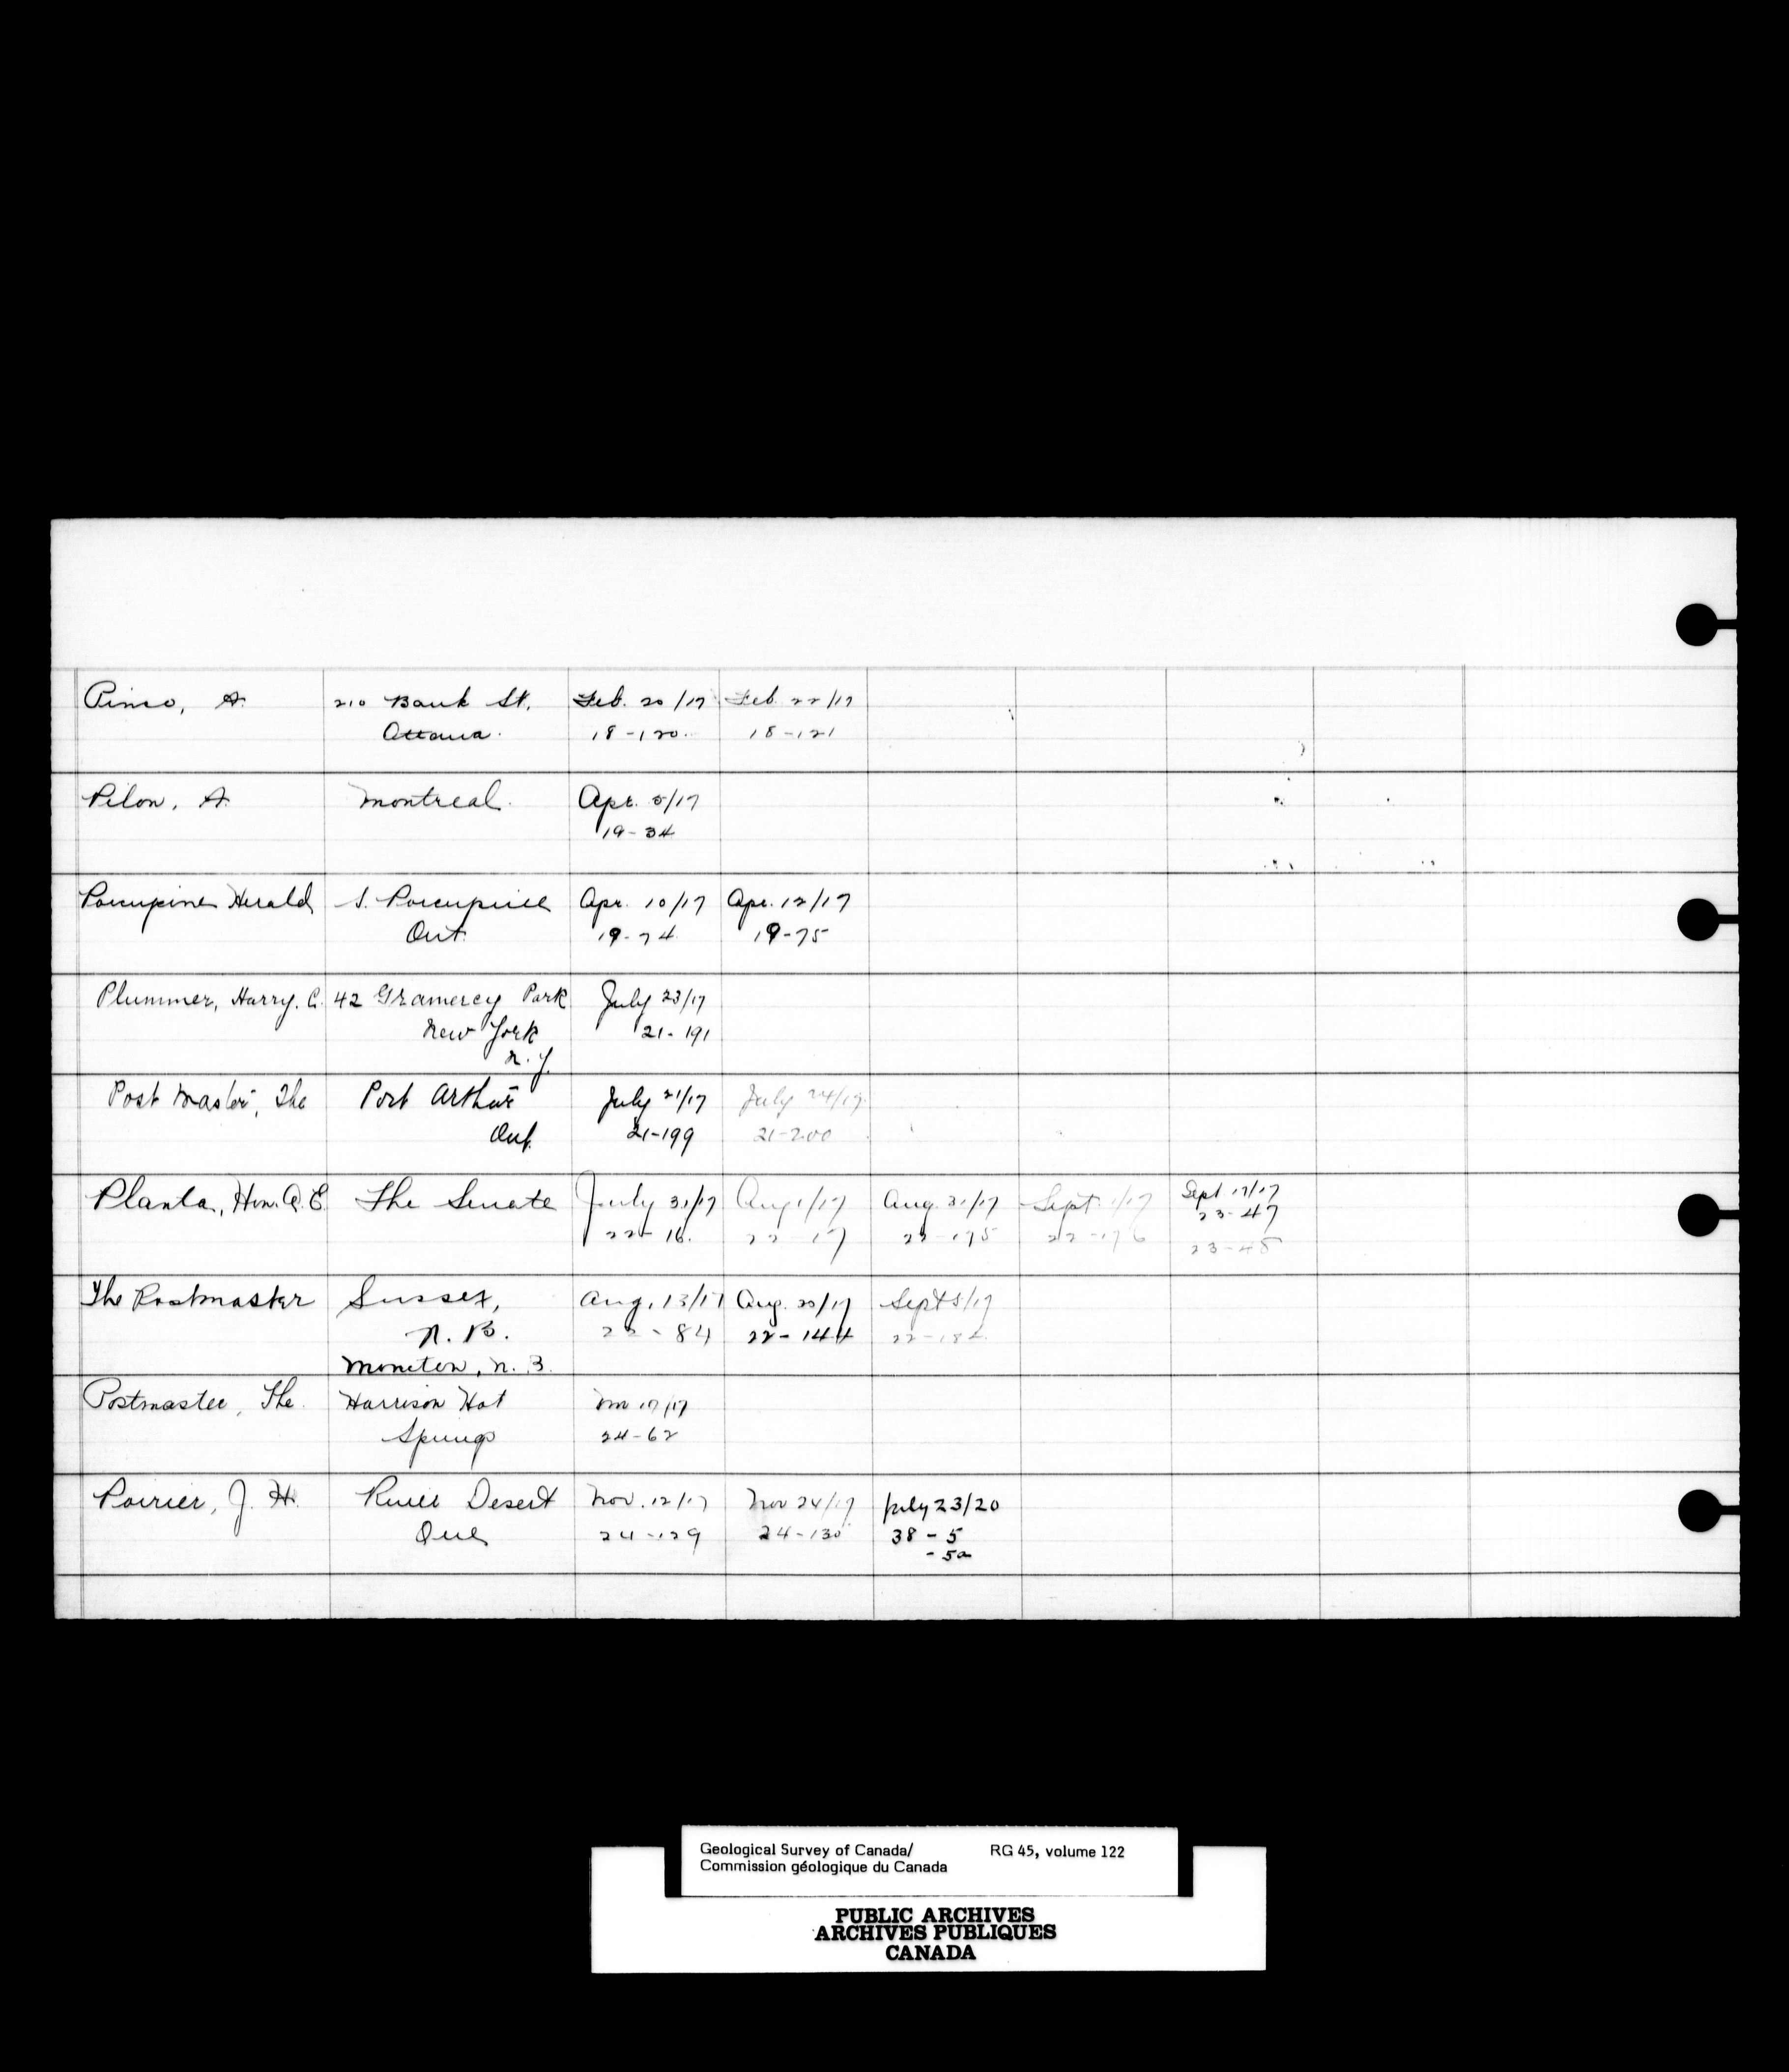 Pinco, A. 210 Bank St. Feb. 20/17 Feb 22/17
Ottawa. 18-120. 18-121
Pilon, A. Montreal. Apr. 5/17
19-34
Porcupine Herald S. Porcupine Apr. 10/17 Apr. 12/17
Ont. 19-74 19-75
Plummer, Harry. C. 42 Gramercy Park July 23/17
New York 21-191
N.Y.
Post Master, The Port Arthur July 21/17 July 24/17
Ont. 21-199 21-200
Planta, Hon. A. E. The Senate July 31/17 Aug 1/17 Aug. 31/17 Sept. 1/17 Sept 17/17
22-16. 22-17 22-175 22-176 23-47
23-48
The Postmaster Sussex, Aug. 13/17 Aug. 20/17 Sept 5/17
N. B. 22-84 22-144 22-184
Moncton, N. B.
Postmaster, The Harrison Hot 17/17
Springs 24-62
Poirier, J. H. River Desert Nov. 12/17 Nov 24/17 July 23/20
Que 24-129 24-130 38-5
-5a
Geological Survey of Canada/ RG 45, volume 122
Commission géologique du Canada
PUBLIC ARCHIVES
ARCHIVES PUBLIQUES
CANADA